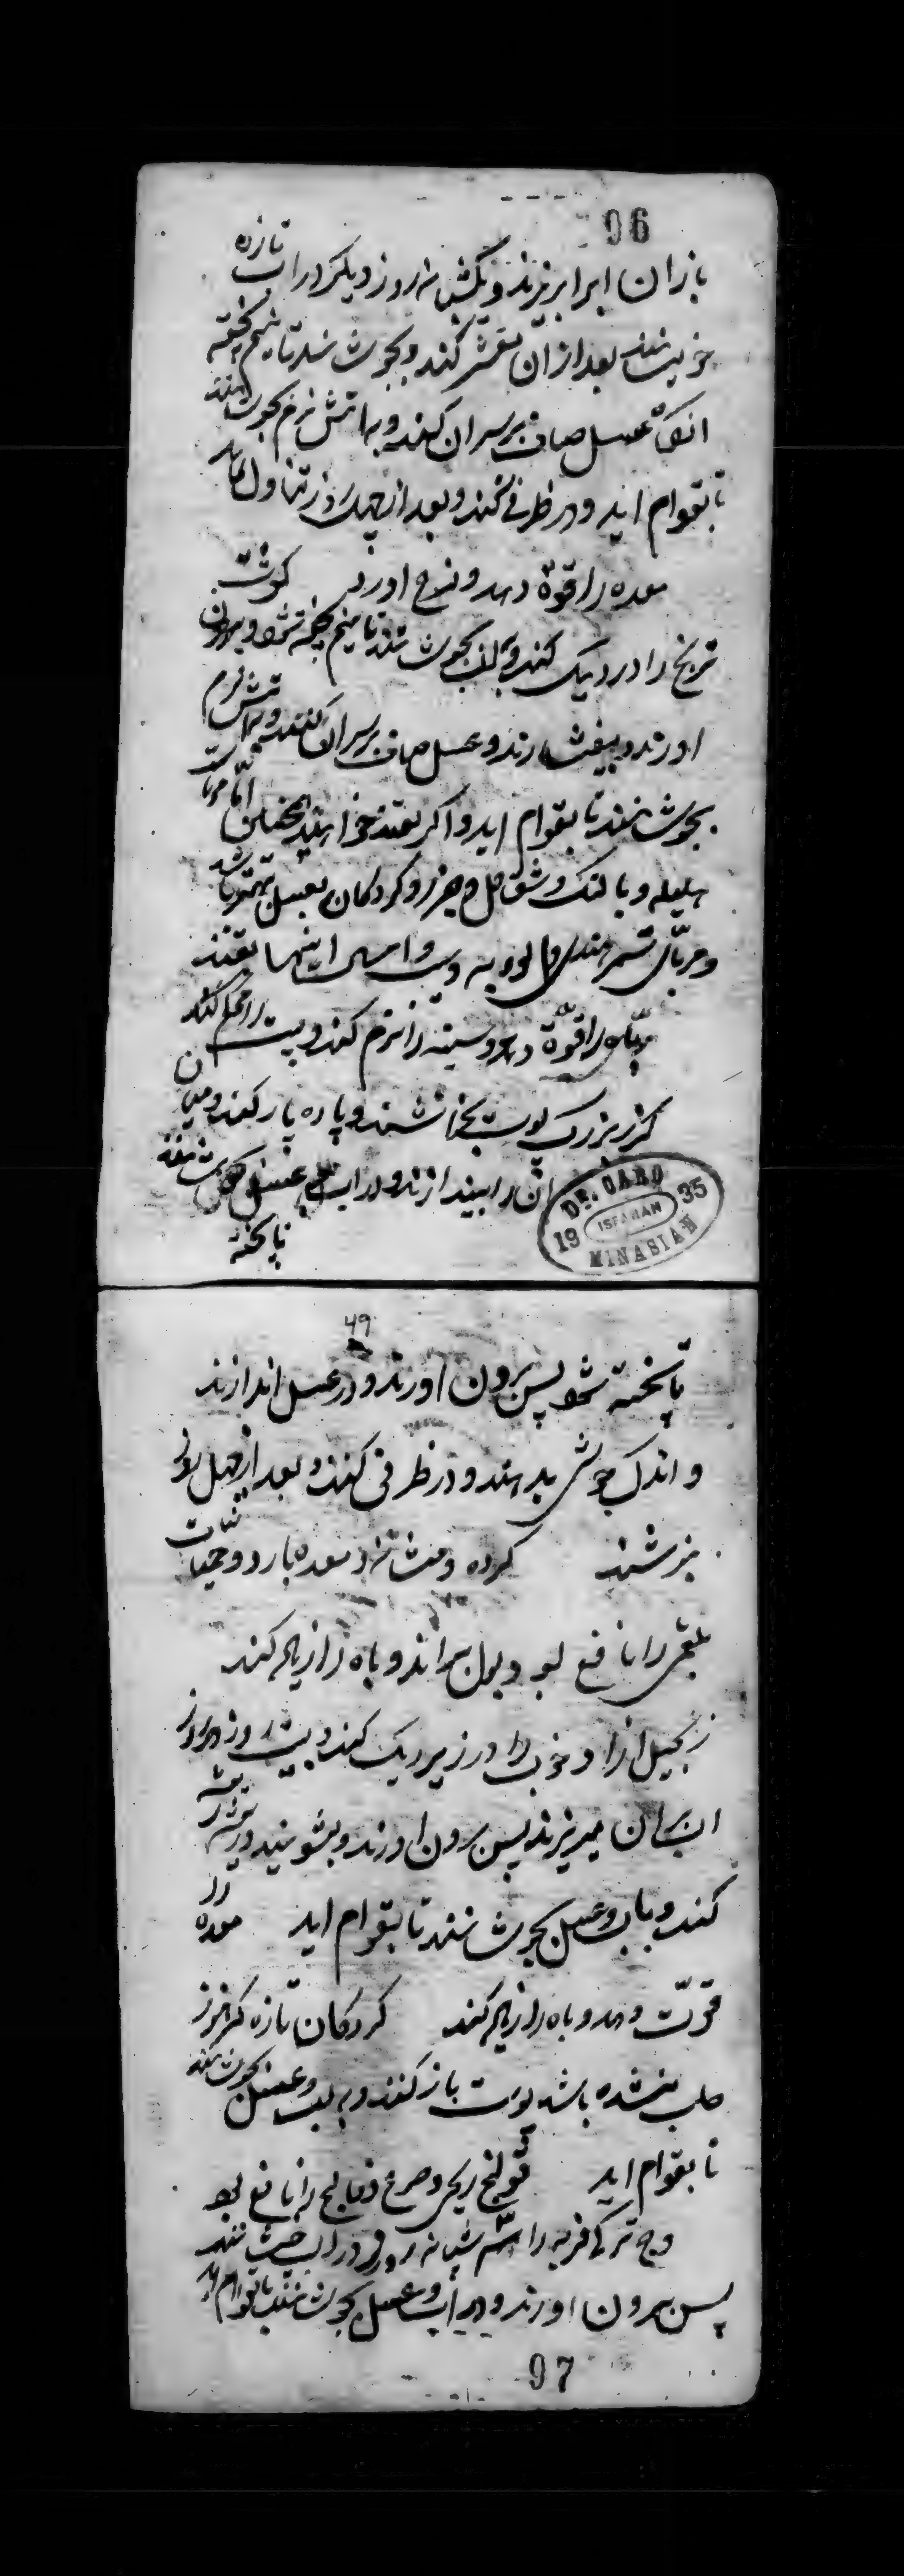 96
باز ان اب را بریزند و یکشبانه روز دیکر در اب تازه
خویسانند بعد از ان مقشر کنند و بجوشانند تا نیم پخته
انکاه عسل صافی بر سر ان کنند و به اتش نرم بجوشانند
تا بقوام اید و در ظرفی کنند و بعد از چهل روز تناول نمایند
معده را قوة دهد و نزج اورد کوشت
ترنج را در دیک کنند و بجوشانند تا نیم پخته شود و بیرون
اورند و بیفشارند و عسل صافی بر سر ان کنند و به اتش نرم
بجوشانند تا بقوام اید و اکر بقند خواهند همچنان اما مربای
هلیله و بالنک و شقاقل و جزر و کردکان بعسل بهتر باشد
و مربای تمر هندی و الو و به و سیب و امثال اینها بقند
باه را قوة دهد و سینه را نرم کند و پشت را محکم کند
کزر بزرک پوست بخراشند و پاره پاره کنند و میان ان
ان را بیندازند و در اب و عسل بجوشانند
تا پخته
DR. CARO
19 ISFAHAN 35
MINASIAN
49
تا پخته شود پس بیرون اورند و در عسل اندازند
و اندک جوشی بدهند و در ظرفی کنند و بعد از چهل روز
کرده و مثانه و معده بارد و حمیات
بلغمی را نافع بود و بول براند و باه را زیاده کند
زنجبیل را در زیر ریک کنند و بیست روز هر روز
اب بر ان میریزند پس بیرون اورند و بشویند و
کنند و باب و عسل بجوشانند تا بقوام اید معده را
قوت دهد و باه را زیاده کند کردکان تازه که هنوز
صلب نشده باشد پوست باز کنند و به اب و عسل بجوشانند
تا بقوام اید قولنج ریحی و صرع و فالج را نافع بود
وج ترکی فربه را سه شبانه روز در اب خیسانند
پس بیرون اورند و در اب و عسل بجوشانند تا بقوام اید
97